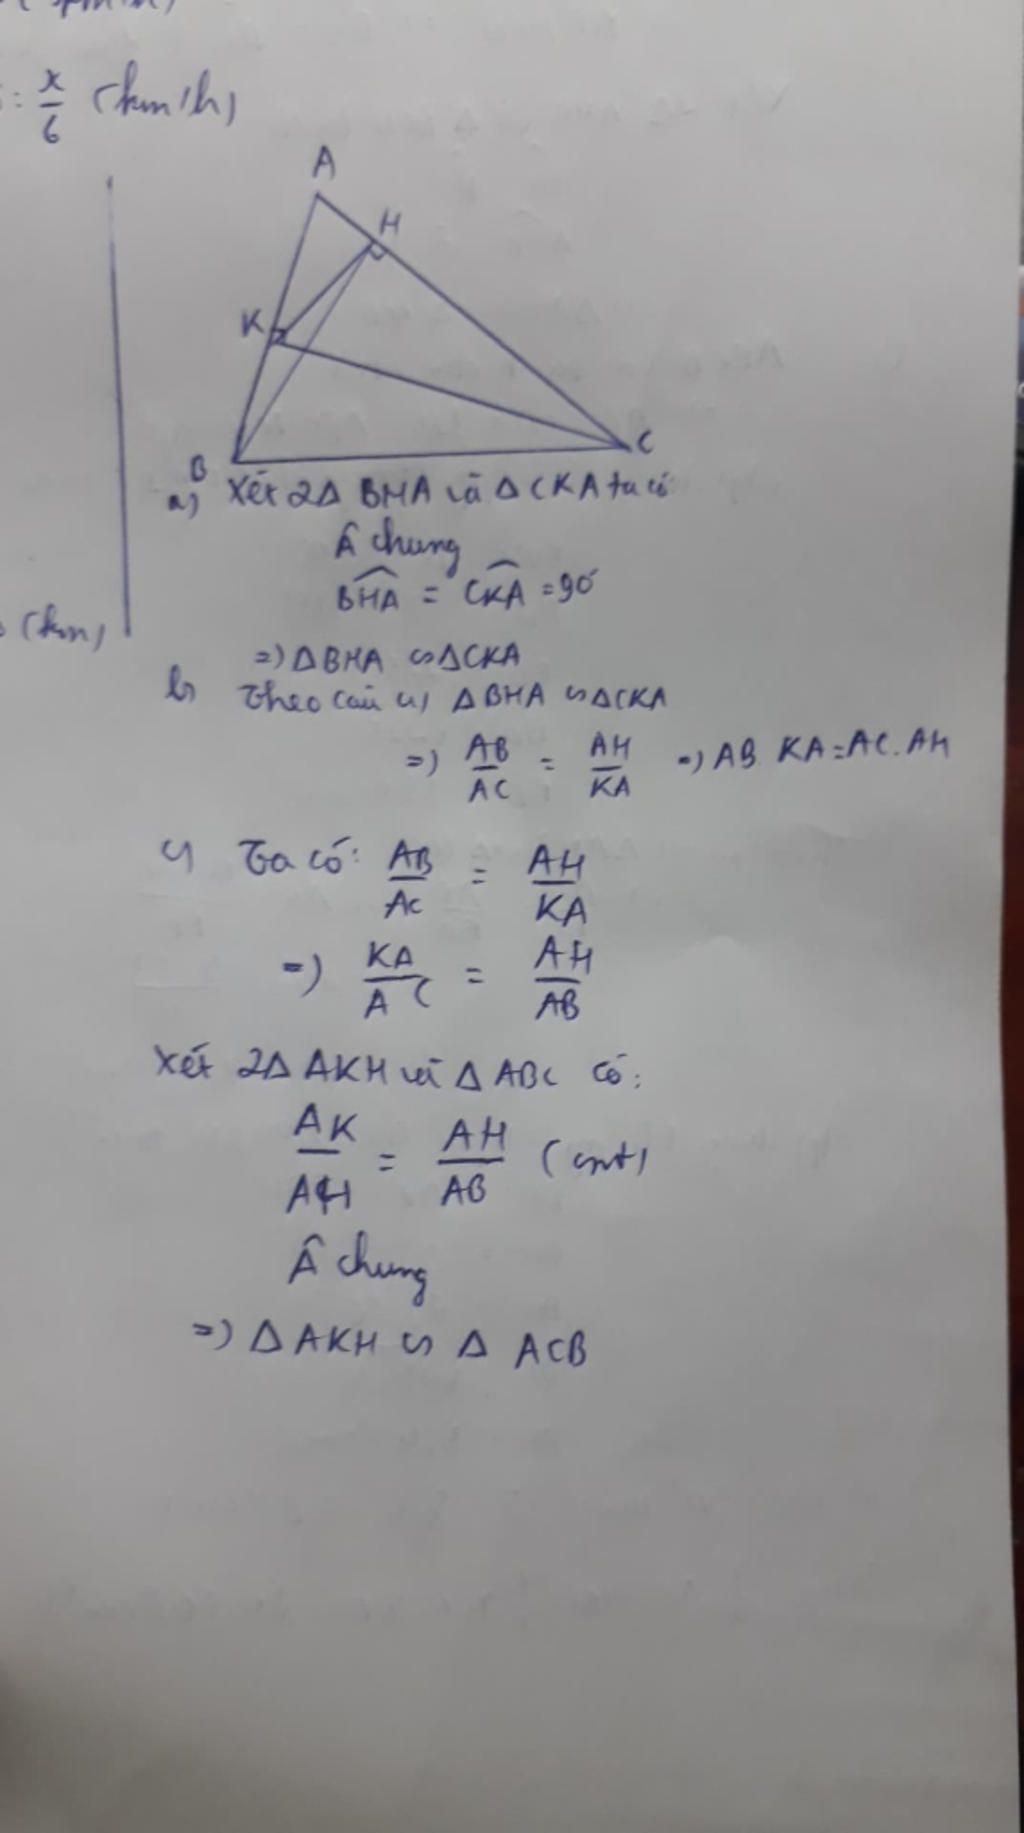 : x/6 (km/h)
A
H
K
B
C
(km)
a) Xét 2Δ BHA và Δ CKA ta có
Â chung
BHA = CKA = 90°
=) ΔBHA ∽ ΔCKA
b) Theo câu a) ΔBHA ∽ ΔCKA
=) AB/AC = AH/KA =) AB. KA = AC. AH
c) Ta có: AB/AC = AH/KA
=) KA/AC = AH/AB
Xét 2Δ AKH và Δ ABC có:
AK/ = AH/AB (cmt)
Â chung
=) Δ AKH ∽ Δ ACB